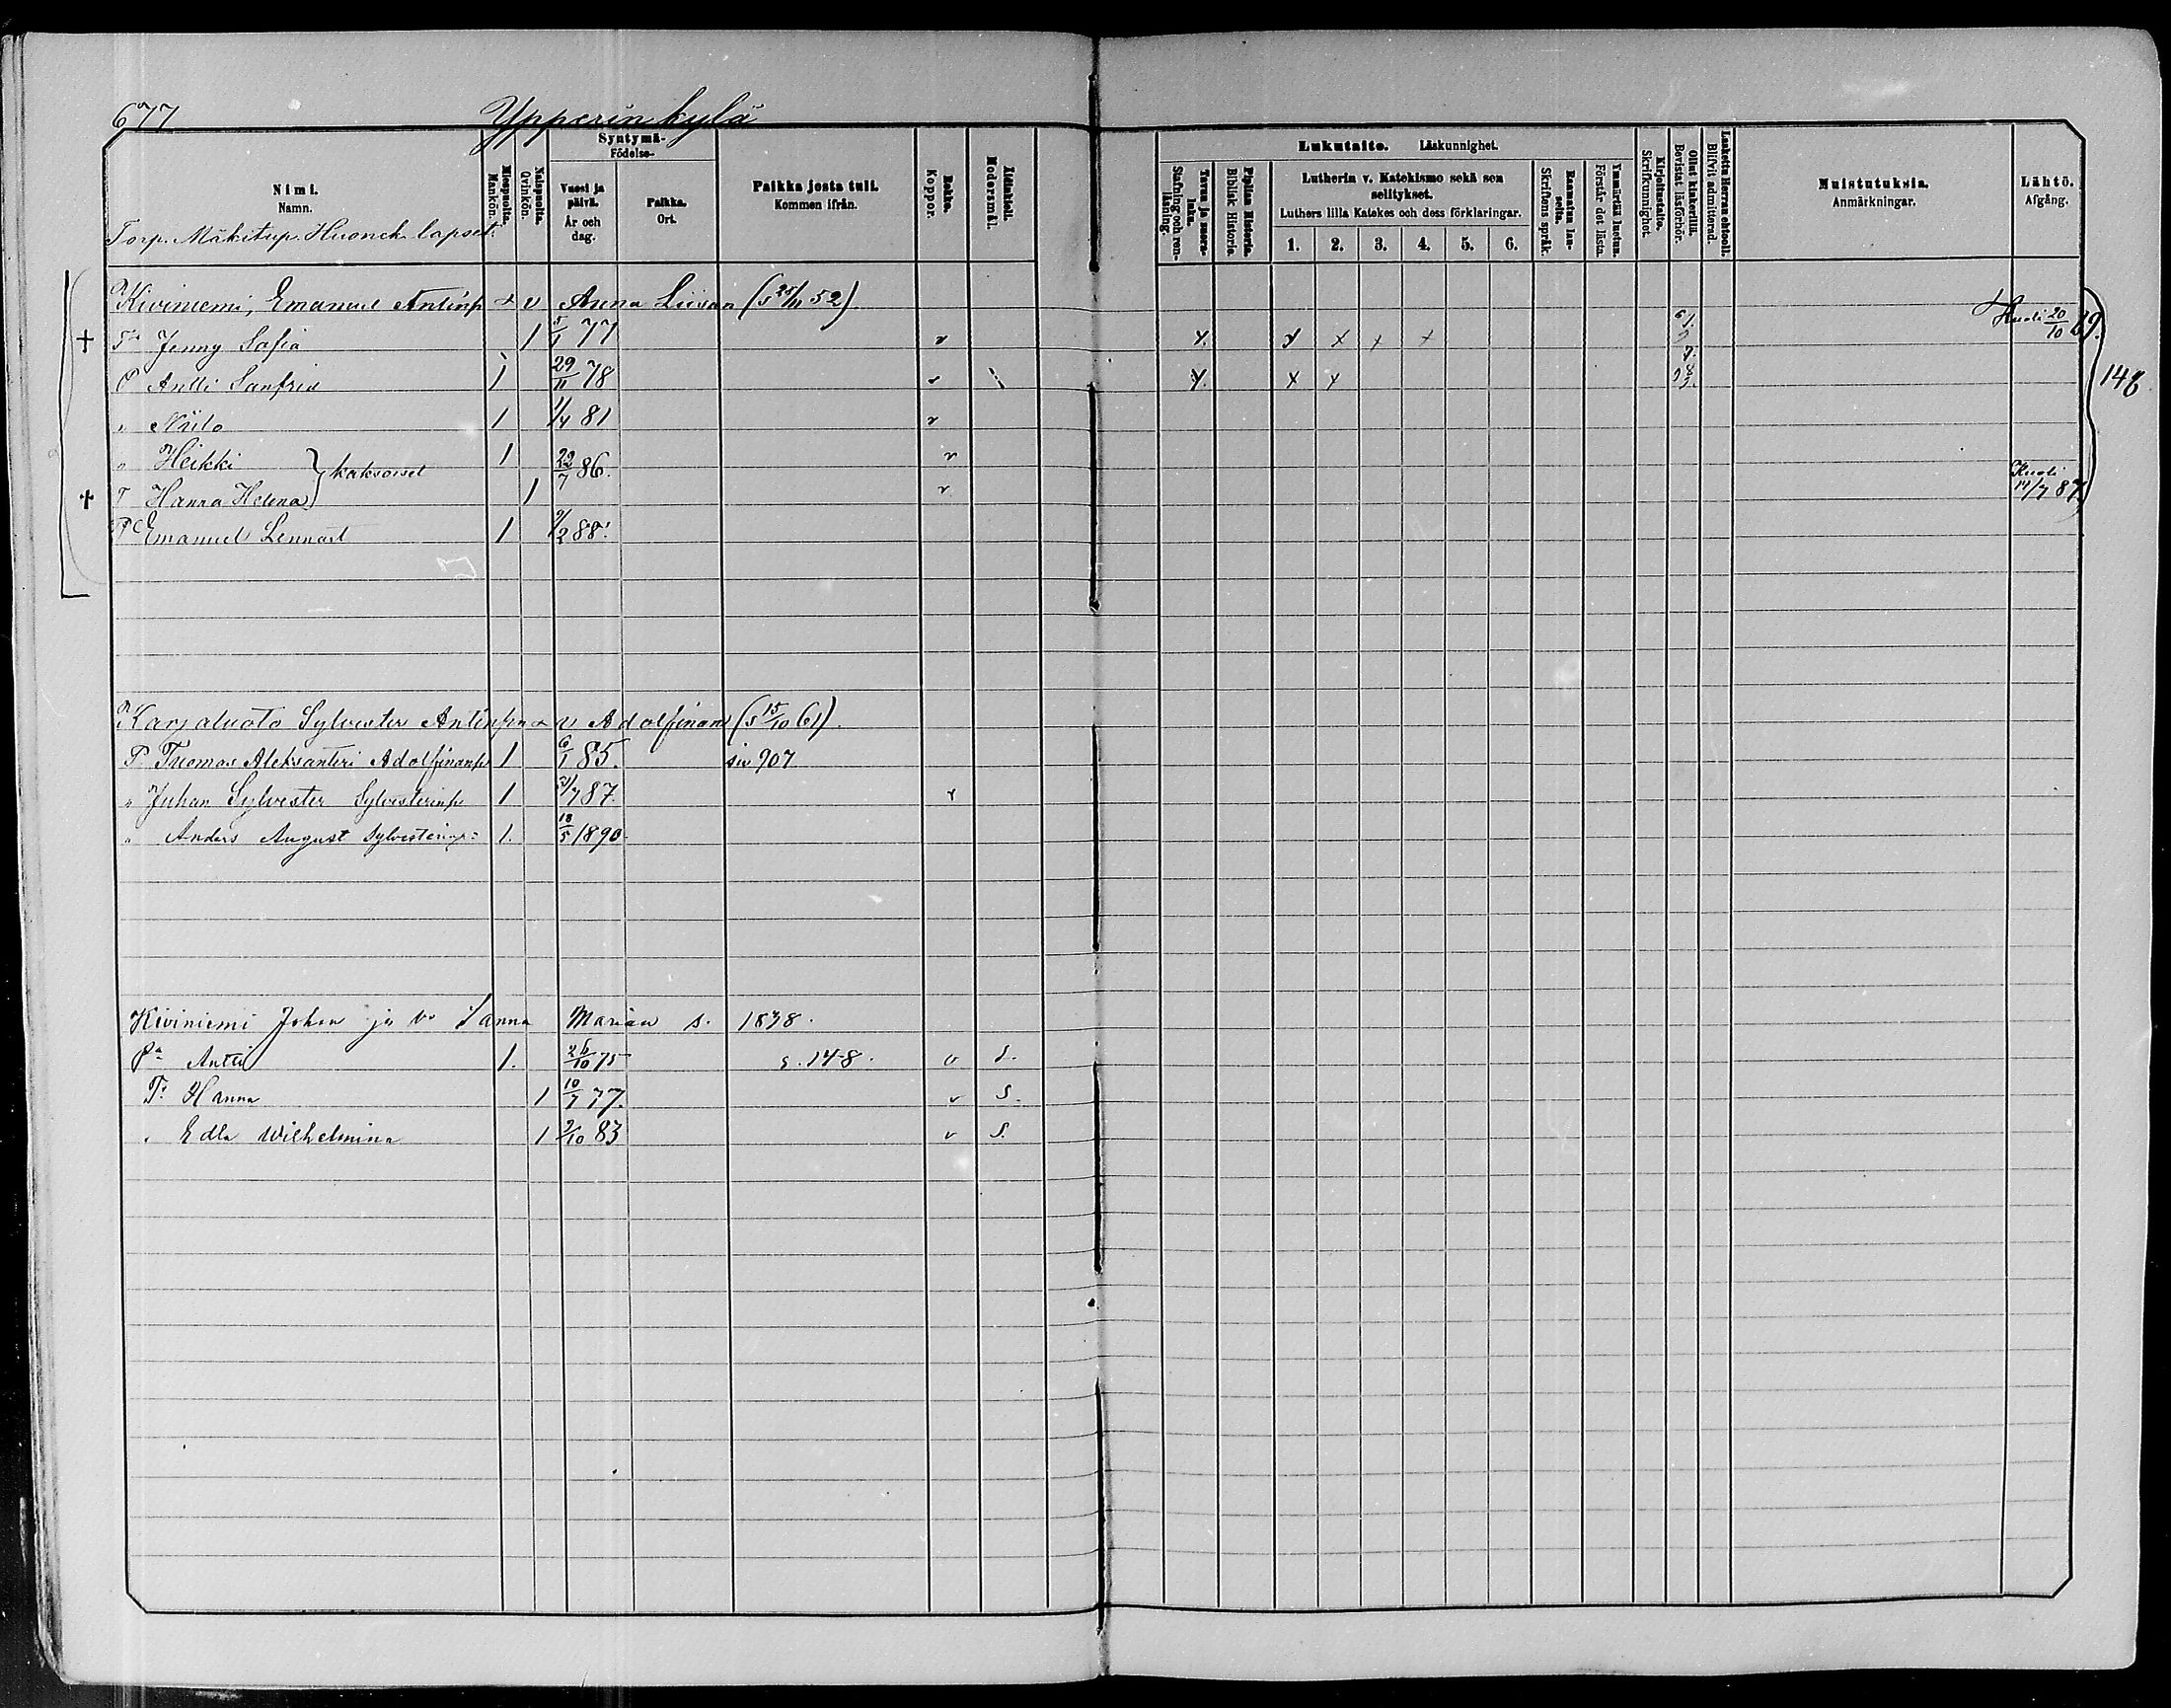 677 Ypperin kylä
Syntymä-
Födelse-
Nimi.
Namn.
Miespuolta.
Mankön.
Naispuolta.
Qvinkön.
Vuosi ja päivä.
År och dag.
Paikka.
Ort.
Paikka josta tuli.
Kommen ifrån.
Rokko.
Koppor.
Äidinkieli.
Modersmål.
Lukutaito. Läskunnighet.
Tavuu ja suora-luku.
Stafning och ren-läsning.
Piplian Historia.
Biblisk Historie.
Lutherin v. Katekismo sekä sen selitykset.
Luthers lilla Katekes och dess förklaringar.
1. 2. 3. 4. 5. 6.
Raamatun lau-seita.
Skriftens språk.
Ymmärtää luetun.
Förstår det lästa.
Kirjoitustaito.
Skrifkunnighet.
Ollut kinkerillä.
Bevistat läsförhör.
Laskettu Herran ehtooll.
Blifvit admitterad.
Muistutuksia.
Anmärkningar.
Lähtö.
Afgång.
Torp. Mäkitup. Huonek. lapset.
Kiviniemi, Emanuel Antinp v Anna Liisan (s 25/11 52)
† Jenny Sofia 1 5/1 77 v x x x x x Kuoli 20/10 89.
P Antti Sanfrid 1 29/11 78 v x x x 148
" Niilo 1 1/4 81 v
" Heikki } kaksoiset 1 22/7 86. v
† T Hanna Helena 1 v Kuoli 14/7 87
P Emanuel Lennart 1 9/2 88.
Karjaluoto Sylvester Antinp v Adolfinan (s 15/10 61).
P Tuomas Aleksanteri Adolfinanp 1 6/1 85. siv 907
" Juhan Sylvester Sylvesterinp 1 31/7 87. v
" Anders August Sylvesterinp 1. 18/5 1890.
Kiviniemi Johan ja v. Sanna Marian s. 1838.
Pa Antti 1. 26/10 75 s. 148. v S.
Tr Hanna 1 10/7 77. v S.
" Edla Wilhelmina 1 2/10 83 v S.